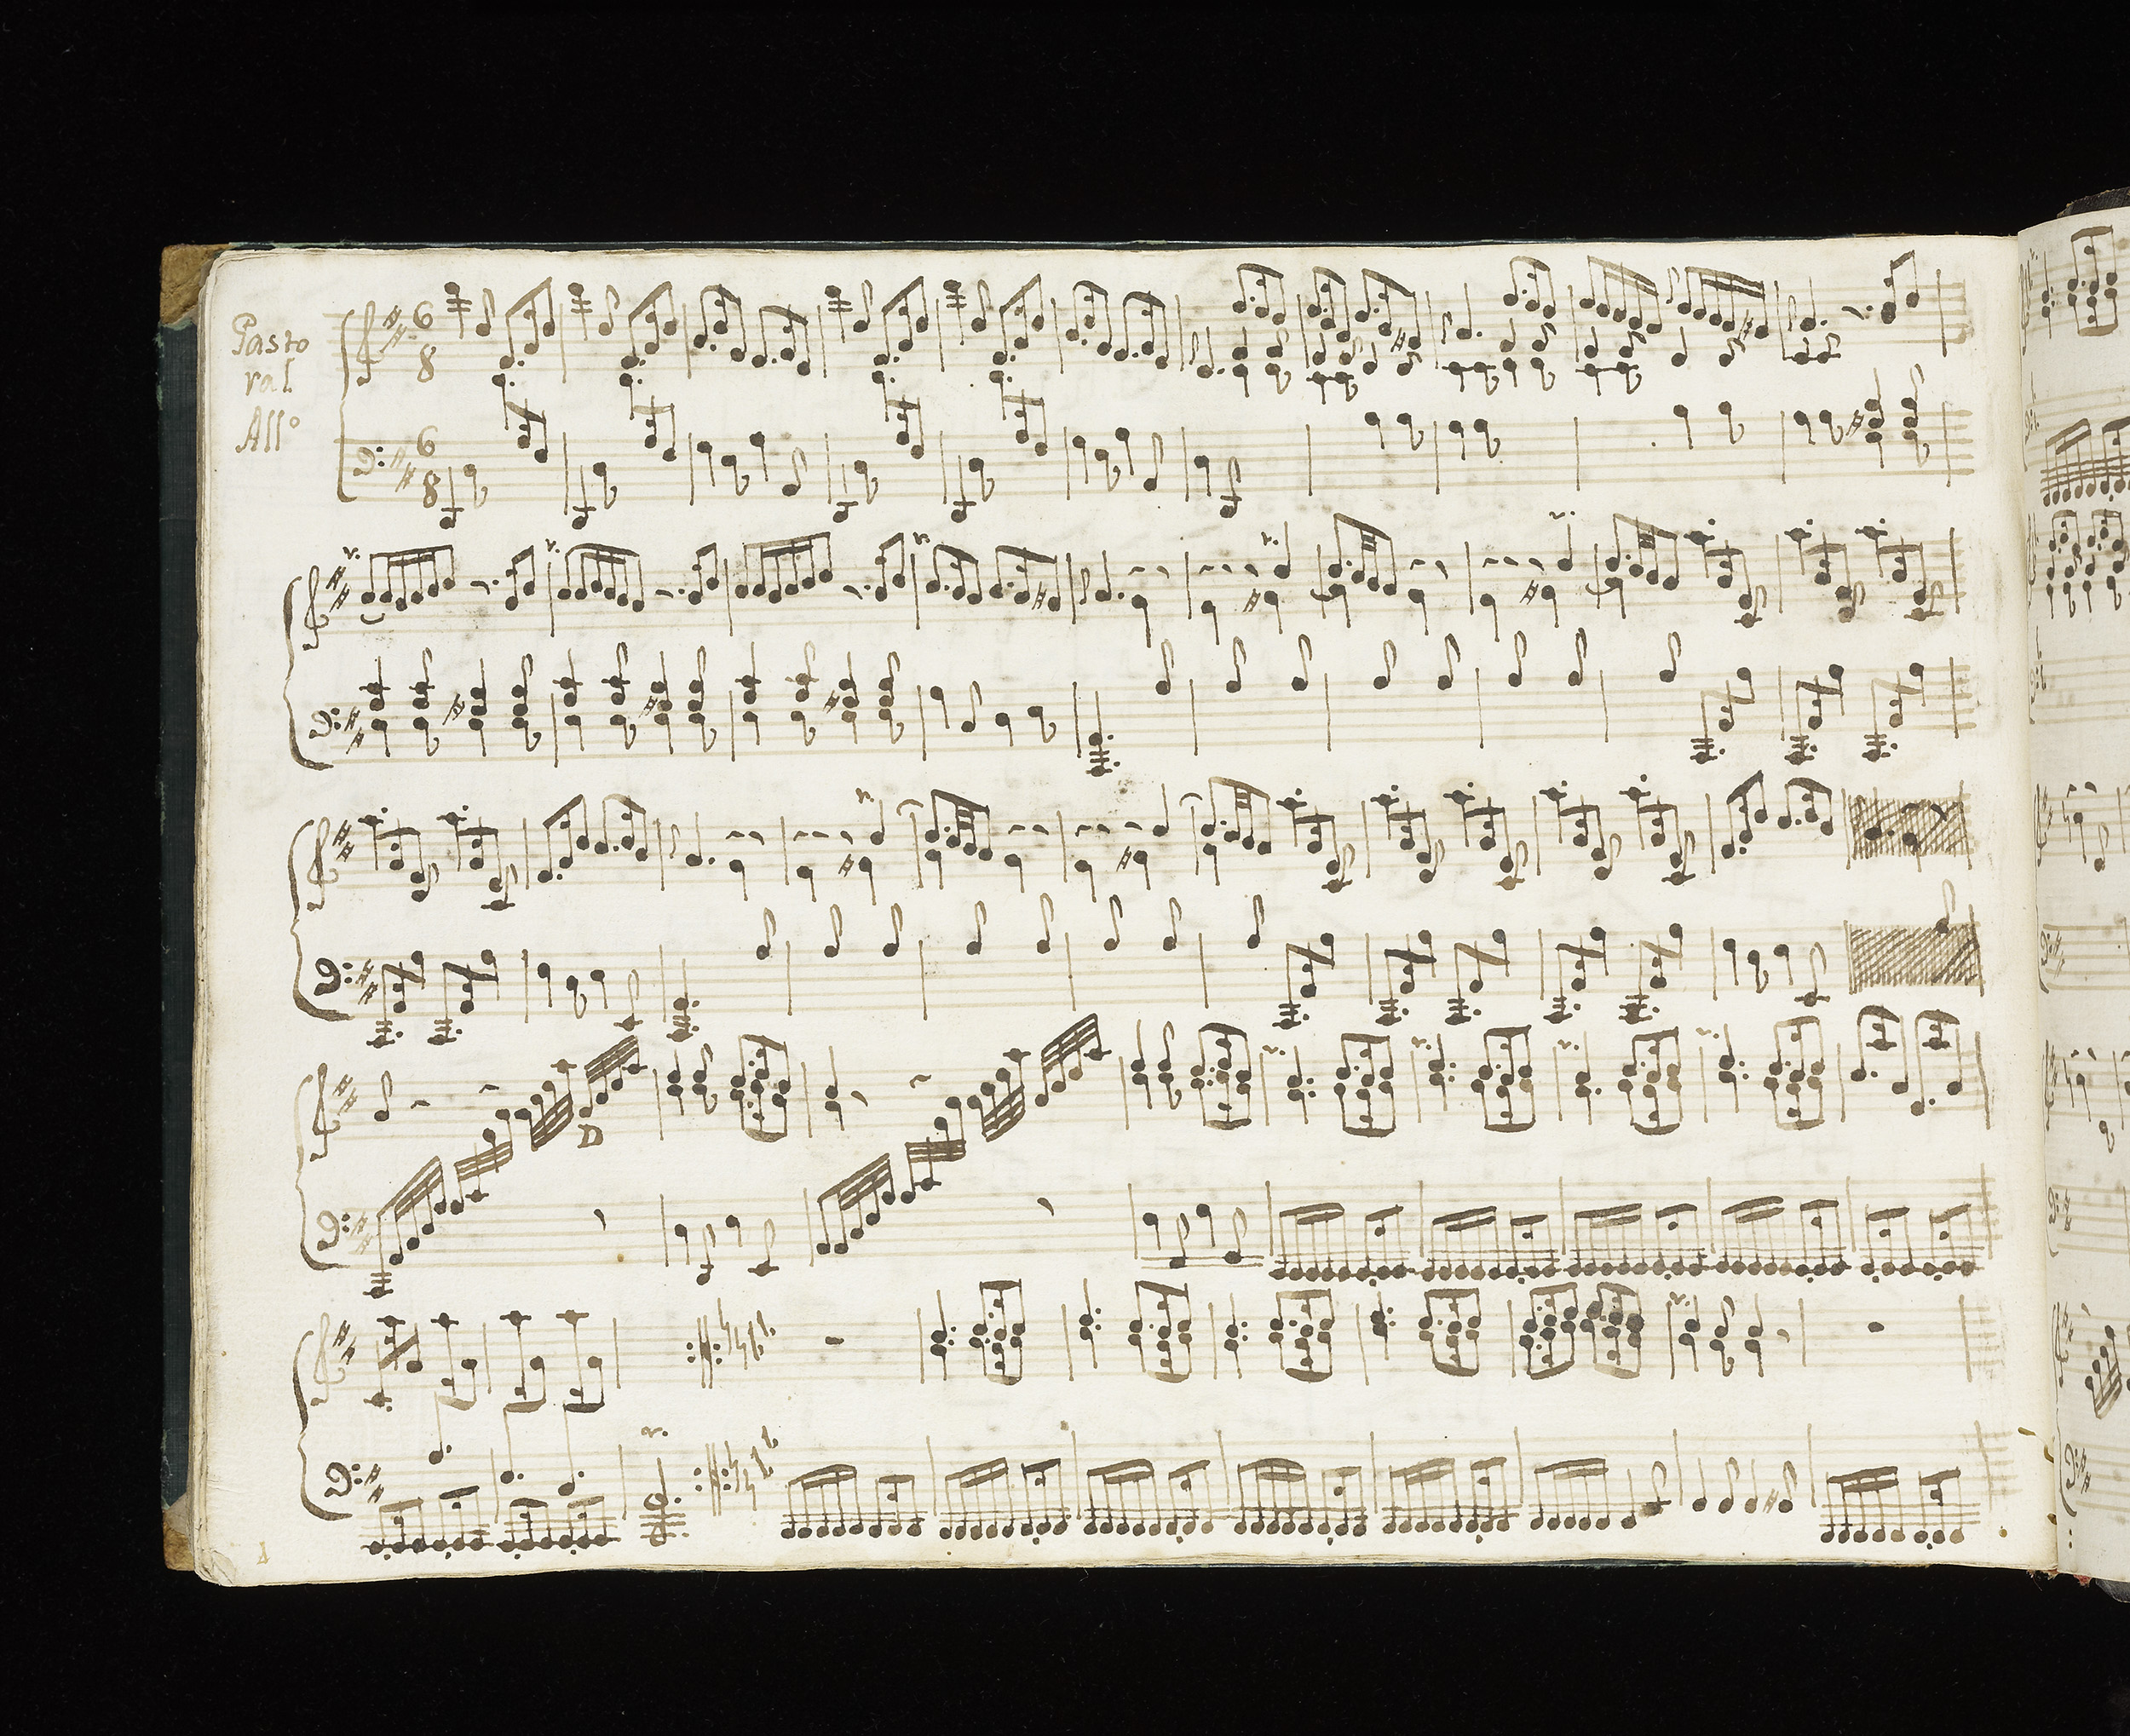 Pasto
ral
All°
6
8
6
8
D